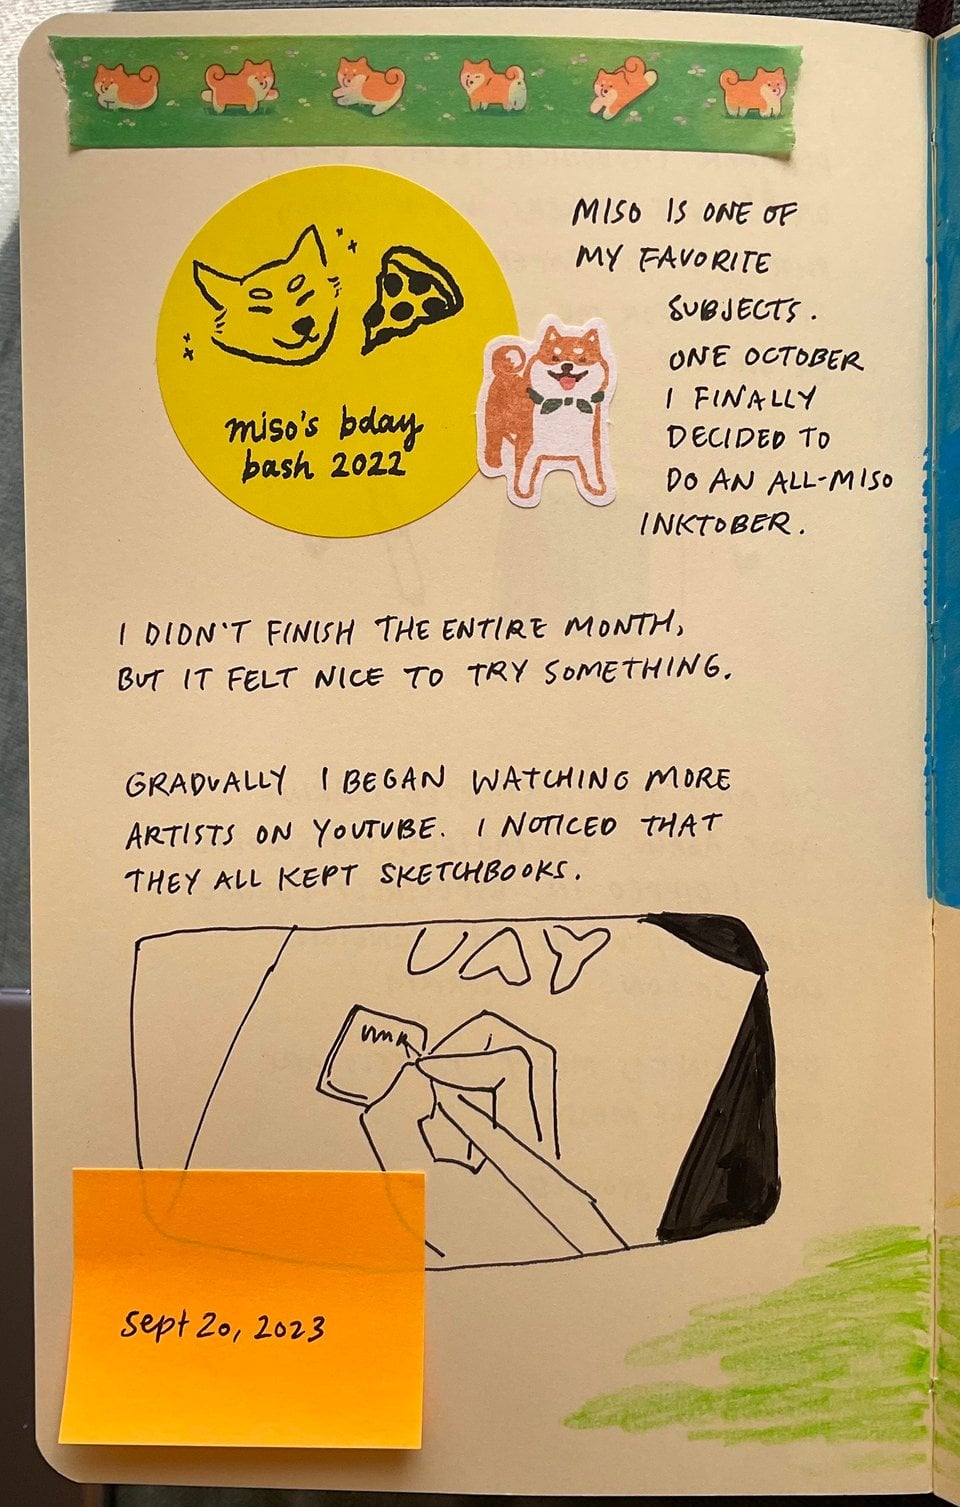 miso's bday
bash 2022
MISO IS ONE OF
MY FAVORITE
SUBJECTS.
ONE OCTOBER
I FINALLY
DECIDED TO
DO AN ALL-MISO
INKTOBER.
I DIDN'T FINISH THE ENTIRE MONTH,
BUT IT FELT NICE TO TRY SOMETHING.
GRADUALLY I BEGAN WATCHING MORE
ARTISTS ON YOUTUBE. I NOTICED THAT
THEY ALL KEPT SKETCHBOOKS.
UAY
sept 20, 2023